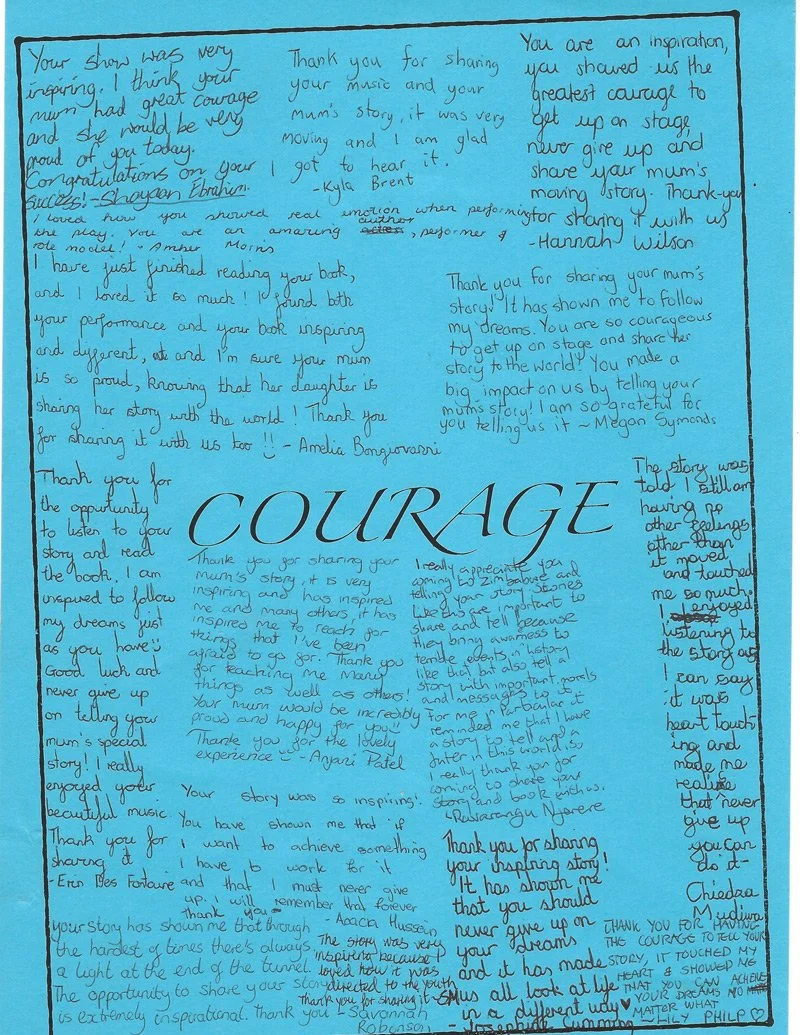 Your show was very
inspiring. I think your
mum had great courage
and she would be very
proud of you today.
Congratulations on your
success! - Shayaan Ebrahim
Thank you for sharing
your music and your
mum's story, it was very
moving and I am glad
I got to hear it.
- Kyla Brent
You are an inspiration,
you showed us the
greatest courage to
get up on stage,
never give up and
share your mum's
moving story. Thank-you
for sharing it with us
- Hannah Wilson
I loved how you showed real emotion when performing
the play. You are an amazing author, performer &
role model! - Amber Morris
I have just finished reading your book,
and I loved it so much! I found both
your performance and your book inspiring
and different, and I'm sure your mum
is so proud, knowing that her daughter is
sharing her story with the world! Thank you
for sharing it with us too!! - Amelia Bongiovanni
Thank you for sharing your mum's
story! It has shown me to follow
my dreams. You are so courageous
to get up on stage and share her
story to the world! You made a
big impact on us by telling your
mums story! I am so grateful for
you telling us it ~ Megan Symonds
COURAGE
Thank you for
the opportunity
to listen to your
story and read
the book. I am
inspired to follow
my dreams just
as you have
Good luck and
never give up
on telling your
mum's special
story! I really
enjoyed your
beautiful music.
Thank you for
sharing it
- Erin Des Fontaine
Thank you for sharing your
mum's story, it is very
inspiring and has inspired
me and many others, it has
inspired me to reach for
things that I've been
afraid to go for. Thank you
for teaching me many
things as well as others!
Your mum would be incredibly
proud and happy for you
Thank you for the lovely
experience - Anjani Patel
I really appreciate you
coming to Zimbabwe and
telling your story. Stories
like this are important to
share and tell because
they bring awarness to
terrible events in history
like that but also tell a
story with important morals
and messages to it
for me in particular it
reminded me that I have
a story to tell and a
in this world is.
I really thank you for
coming to share your
story and book with us.
Nyerere
The story was
told I still am
having no
other feelings
other than
it moved
and touched
me so much.
I enjoyed
listening to
the story as
I can say
it was
heart touch-
ing and
made me
realize
that never
give up
you can
do it -
Chiedza
Mudiwa
Your story was so inspiring!
You have shown me that if
I want to achieve something
I have to work for it
and that I must never give
up. I will remember that forever
Thank you - Acacia Hussein
Thank you for sharing
your inspiring story!
It has shown me
that you should
never give up on
your dreams
and it has made
us all look at life
in a different way ♥
- Josephine Cumming
your story has shown me that through
the hardest of times there's always
a light at the end of the tunnel.
The opportunity to share your story
is extremely inspirational. Thank you - Savannah
Robenson
The story was very
inspiring because I
loved how it was
directed to the youth
Thank you for sharing it - SM
THANK YOU FOR HAVING
THE COURAGE TO TELL YOUR
STORY, IT TOUCHED MY
HEART & SHOWED ME
THAT YOU CAN ACHIEVE
YOUR DREAMS NO
MATTER WHAT
- LILY PHILP ♡